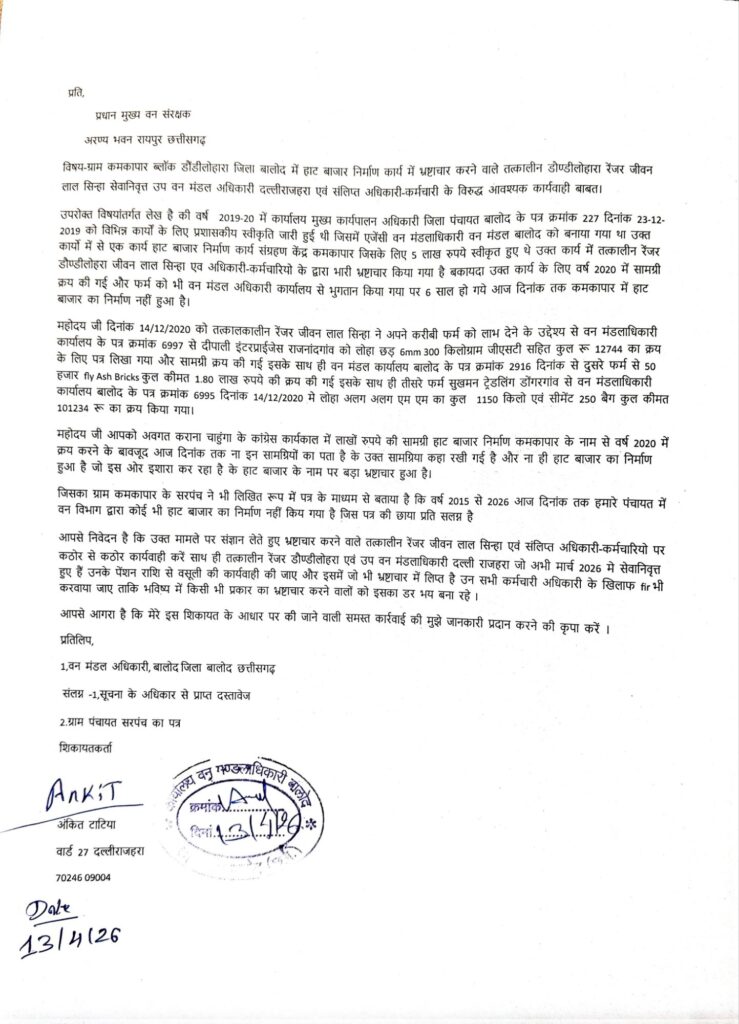 प्रति,
प्रधान मुख्य वन संरक्षक
अरण्य भवन रायपुर छत्तीसगढ़
विषय-ग्राम कमकापार ब्लॉक डौंडीलोहारा जिला बालोद में हाट बाजार निर्माण कार्य में भ्रष्टाचार करने वाले तत्कालीन डौण्डीलोहारा रेंजर जीवन
लाल सिन्हा सेवानिवृत्त उप वन मंडल अधिकारी दल्लीराजहरा एवं संलिप्त अधिकारी-कर्मचारी के विरुद्ध आवश्यक कार्यवाही बाबत।
उपरोक्त विषयांतर्गत लेख है की वर्ष 2019-20 में कार्यालय मुख्य कार्यपालन अधिकारी जिला पंचायत बालोद के पत्र क्रमांक 227 दिनांक 23-12-
2019 को विभिन्न कार्यों के लिए प्रशासकीय स्वीकृति जारी हुई थी जिसमें एजेंसी वन मंडलाधिकारी वन मंडल बालोद को बनाया गया था उक्त
कार्यों में से एक कार्य हाट बाजार निर्माण कार्य संग्रहण केंद्र कमकापार जिसके लिए 5 लाख रुपये स्वीकृत हुए थे उक्त कार्य में तत्कालीन रेंजर
डौण्डीलोहरा जीवन लाल सिन्हा एव अधिकारी-कर्मचारियो के द्वारा भारी भ्रष्टाचार किया गया है बकायदा उक्त कार्य के लिए वर्ष 2020 में सामाग्री
क्रय की गई और फर्म को भी वन मंडल अधिकारी कार्यालय से भुगतान किया गया पर 6 साल हो गये आज दिनांक तक कमकापार में हाट
बाजार का निर्माण नहीं हुआ है।
महोदय जी दिनांक 14/12/2020 को तत्कालकालीन रेंजर जीवन लाल सिन्हा ने अपने करीबी फर्म को लाभ देने के उद्देश्य से वन मंडलाधिकारी
कार्यालय के पत्र क्रमांक 6997 से दीपाली इंटरप्राईजेस राजनांदगांव को लोहा छड़ 6mm 300 किलोग्राम जीएसटी सहित कुल रू 12744 का क्रय
के लिए पत्र लिखा गया और सामग्री क्रय की गई इसके साथ ही वन मंडल कार्यालय बालोद के पत्र क्रमांक 2916 दिनांक से दुसरे फर्म से 50
हजार fly Ash Bricks कुल कीमत 1.80 लाख रुपये की क्रय की गई इसके साथ ही तीसरे फर्म सुखमन ट्रेडलिंग डोंगरगांव से वन मंडलाधिकारी
कार्यालय बालोद के पत्र क्रमांक 6995 दिनांक 14/12/2020 मे लोहा अलग अलग एम एम का कुल 1150 किलो एवं सीमेंट 250 बैग कुल कीमत
101234 रू का क्रय किया गया।
महोदय जी आपको अवगत कराना चाहुंगा के कांग्रेस कार्यकाल में लाखों रुपये की सामाग्री हाट बाजार निर्माण कमकापार के नाम से वर्ष 2020 में
क्रय करने के बावजूद आज दिनांक तक ना इन सामाग्रियों का पता है के उक्त सामाग्रिया कहा रखी गई है और ना ही हाट बाजार का निर्माण
हुआ है जो इस ओर इशारा कर रहा है के हाट बाजार के नाम पर बड़ा भ्रष्टाचार हुआ है।
जिसका ग्राम कमकापार के सरपंच ने भी लिखित रूप में पत्र के माध्यम से बताया है कि वर्ष 2015 से 2026 आज दिनांक तक हमारे पंचायत में
वन विभाग द्वारा कोई भी हाट बाजार का निर्माण नहीं किया गया है जिस पत्र की छाया प्रति सलग्न है
आपसे निवेदन है कि उक्त मामले पर संज्ञान लेते हुए भ्रष्टाचार करने वाले तत्कालीन रेंजर जीवन लाल सिन्हा एवं संलिप्त अधिकारी-कर्मचारियो पर
कठोर से कठोर कार्यवाही करें साथ ही तत्कालीन रेंजर डौण्डीलोहरा एवं उप वन मंडलाधिकारी दल्ली राजहरा जो अभी मार्च 2026 मे सेवानिवृत्त
हुए हैं उनके पेंशन राशि से वसूली की कार्यवाही की जाए और इसमें जो भी भ्रष्टाचार में लिप्त है उन सभी कर्मचारी अधिकारी के खिलाफ fir भी
करवाया जाए ताकि भविष्य में किसी भी प्रकार का भ्रष्टाचार करने वालों को इसका डर भय बना रहे ।
आपसे आगरा है कि मेरे इस शिकायत के आधार पर की जाने वाली समस्त कार्रवाई की मुझे जानकारी प्रदान करने की कृपा करें ।
प्रतिलिप,
1,वन मंडल अधिकारी, बालोद जिला बालोद छत्तीसगढ़
संलग्न -1,सूचना के अधिकार से प्राप्त दस्तावेज
2.ग्राम पंचायत सरपंच का पत्र
शिकायतकर्ता
ANKIT
अंकित टाटिया
वार्ड 27 दल्लीराजहरा
70246 09004
Date
13/4/26
कार्यालय वन मण्डलाधिकारी बालोद
क्रमांक
दिनां. 13/4/26